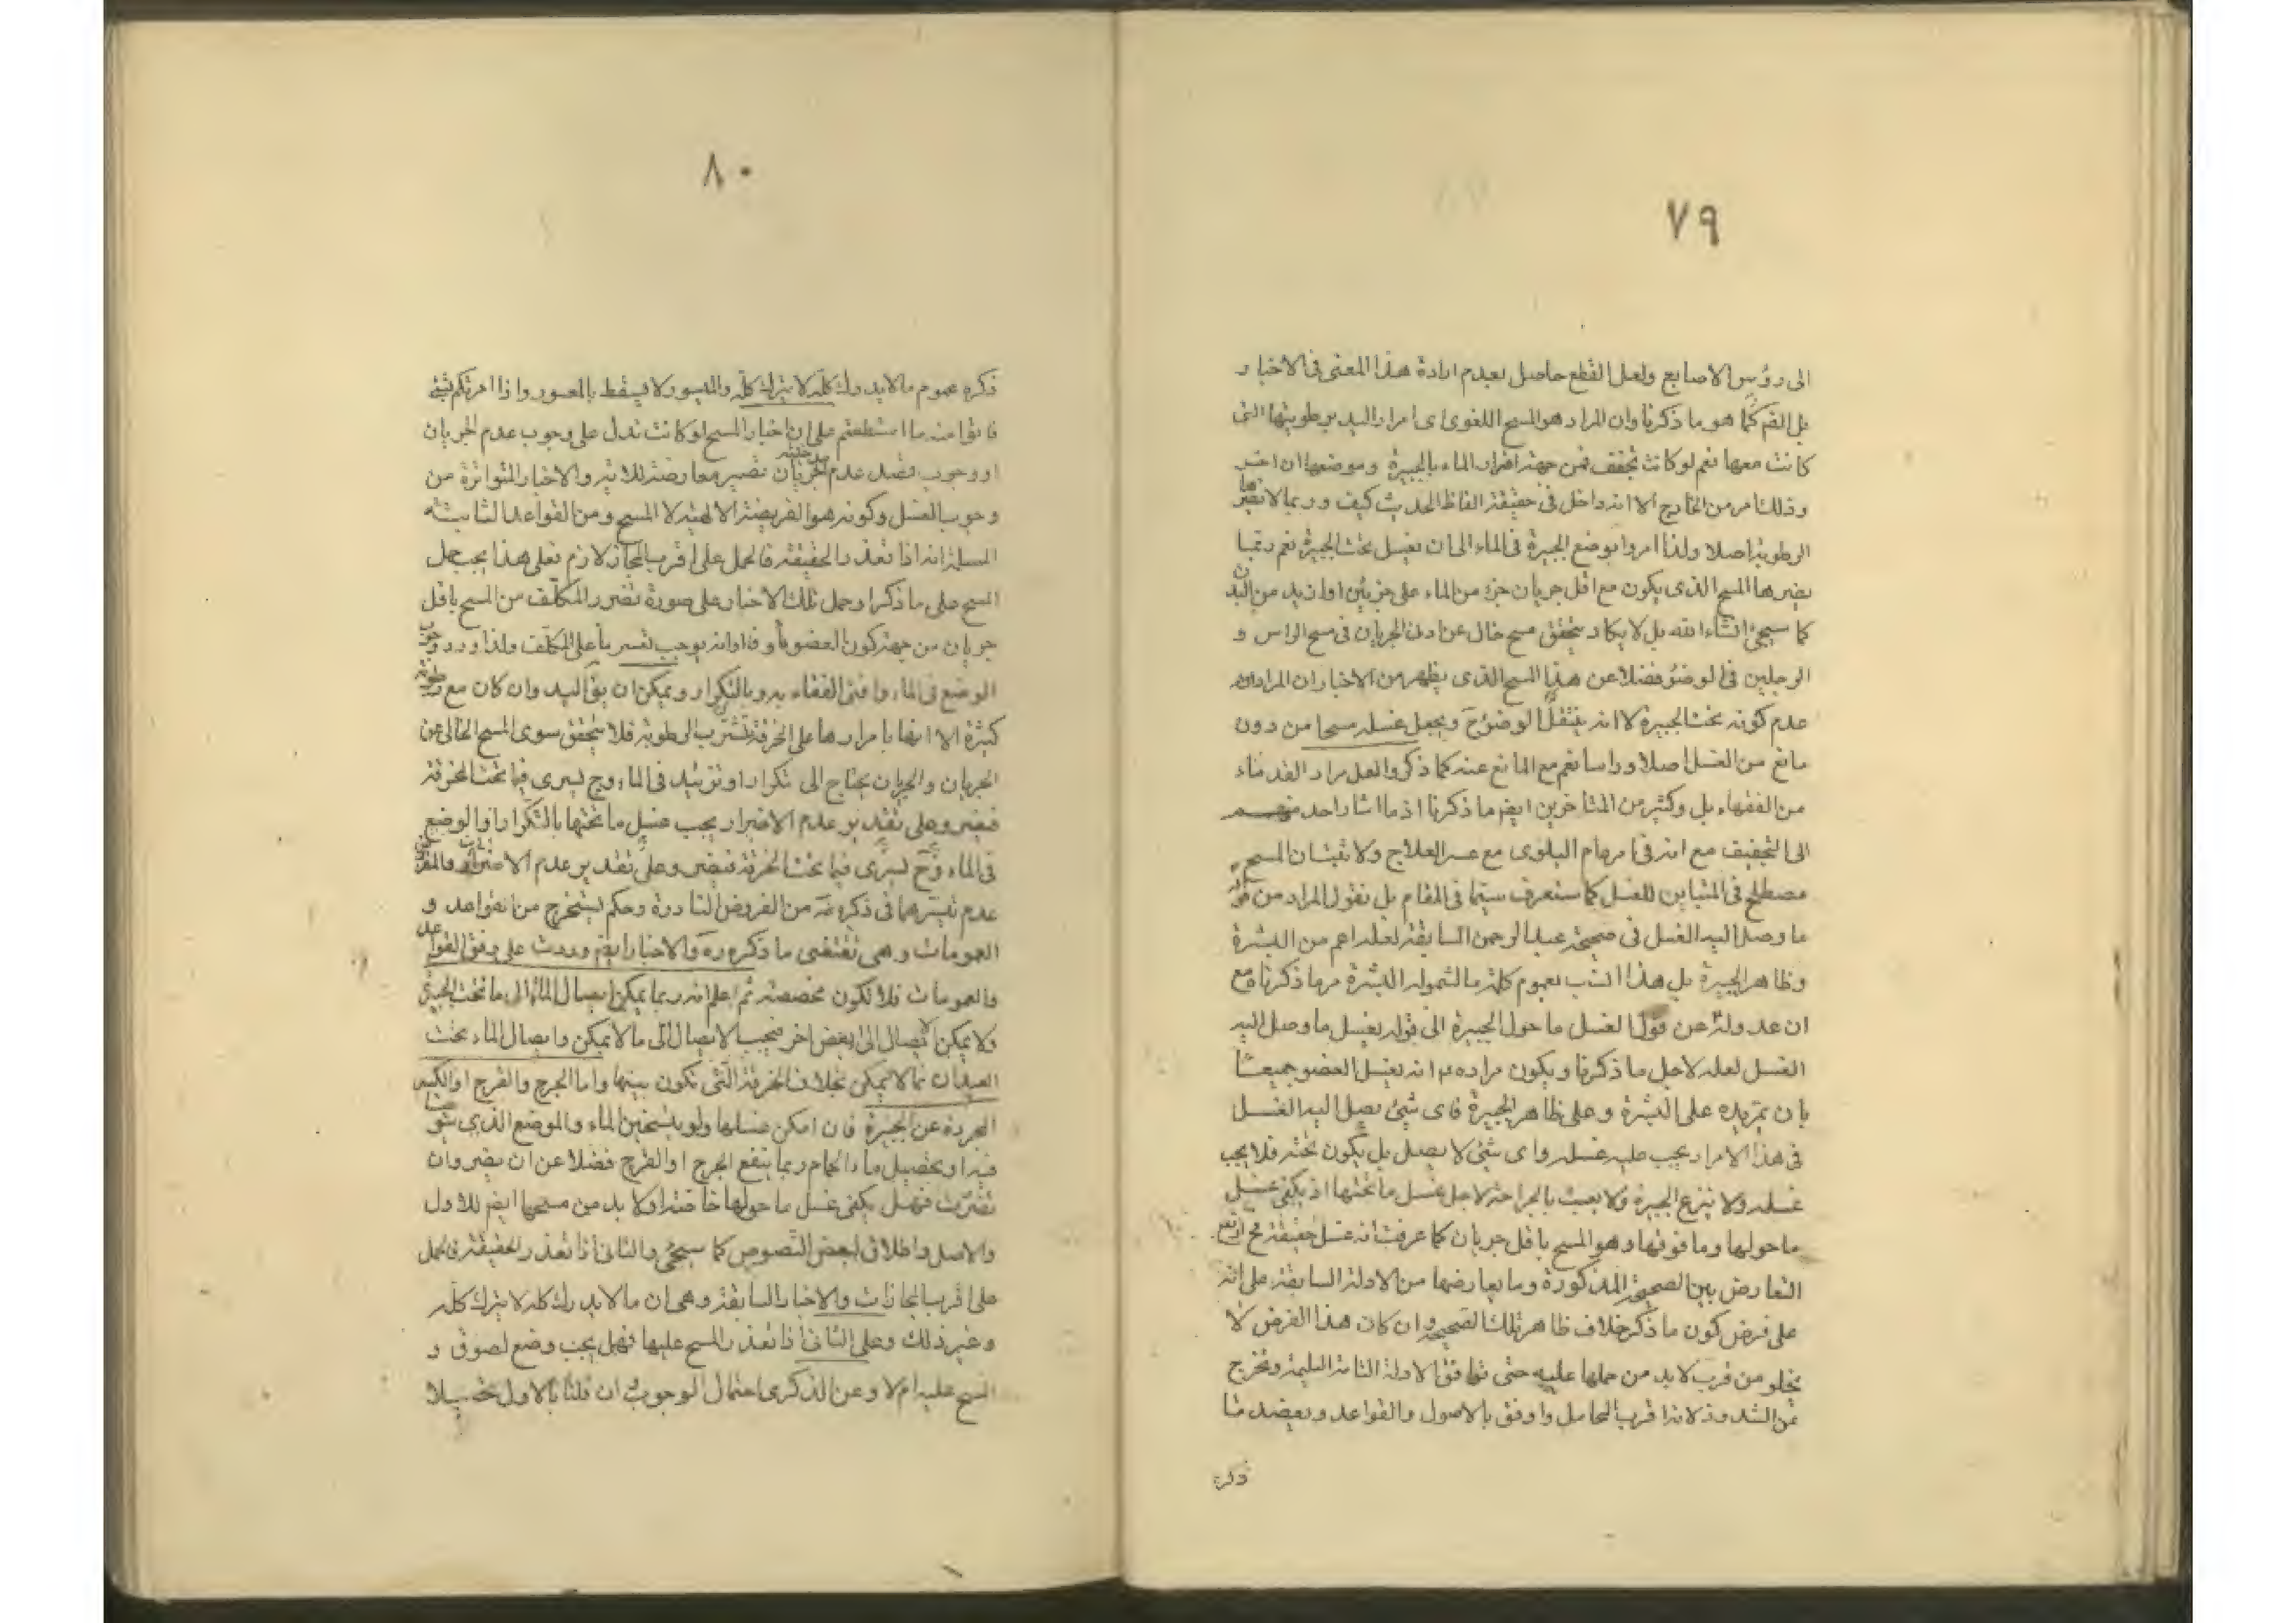 ٧٩
الى رؤس الاصابع ولعل القطع حاصل بعدم ارادة هذا المعنى فى الاخبار
بل الفهم كما هو ما ذكرنا وان المراد هو المسح اللغوى اى امرار اليد برطوبتها التى
كانت معها نعم لو كانت تجفف فمن جهة اضرار الماء بالجبيرة وموضعها ان اضر
وذلك امر من الخارج الا انه داخل فى حقيقة الفاظ الحديث كيف وربما لا تضرها
الرطوبة اصلا ولذا امروا بوضع الجبيرة فى الماء الى ان يغسل تحت الجبيرة نعم ربما
يضرها المسح الذى يكون مع اقل جريان جزء من الماء على جزئين او ازيد من البدن
كما سيجئ انشاء الله بل لا يكاد يتحقق مسح خال عن ادنى الجريان فى مسح الراس و
الرجلين فى الوضوء فضلا عن هذا المسح الذى يظهر من الاخبار ان المراد منه
عدم كونه تحت الجبيرة لا انه ينتقل الوضوء ح ويجعل غسله مسحا من دون
مانع من الغسل اصلا وراسا نعم مع المانع عنه كما ذكروا لعل مراد القدماء
من الفقهاء بل وكثير من المتاخرين ايضم ما ذكرنا اذ ما اشار احد منهم
الى التجفيف مع انه فى امر عام البلوى مع عسر العلاج ولا تبتان المسح
مصطلح فى المتباين للغسل كما ستعرف سيما فى المقام بل نقول المراد من قوله
ما وصل اليه الغسل فى صحيحة عبد الرحمن السابقة لعله اعم من البشرة
وظاهر الجبيرة بل هذا انسب بعموم كلمة ما لشموله البشرة مع ما ذكرناه مع
ان عدوله عن قول اغسل ما حول الجبيرة الى قوله يغسل ما وصل اليه
الغسل لعله لاجل ما ذكرنا ويكون مراده ع انه يغسل العضو جميعا
بان يمر يده على البشرة وعلى ظاهر الجبيرة فاى شئ يصل اليه الغسل
فى هذا الامرار يجب عليه غسله واى شئ لا يصل بل يكون تحته فلا يجب
غسله ولا ينزع الجبيرة ولا يعبث بالجراحة لاجل غسل ما تحتها اذ يكفى غسل
ما حولها وما فوقها وهو المسح باقل جريان كما عرفت انه غسل حقيقة فح ارتفع
التعارض بين الصحيحة المذكورة وما يعارضها من الادلة السابقة على انه
على فرض كون ما ذكر خلاف ظاهر تلك الصحيحة وان كان هذا الفرض لا
يخلو من قرب لا بد من حملها عليه حتى توافق الادلة التامة السليمة وتخرج
عن الشذوذ لانه اقرب المحامل واوفق بالاصول والقواعد وبعضد ما
ذكره
٨٠
ذكره عموم ما لا يدرك كله لا يترك كله والميسور لا يسقط بالمعسور واذا امرتكم بشئ
فاتوا منه ما استطعتم على ان اخبار المسح لو كانت تدل على وجوب عدم الجريان
او وجوب قصد عدم الجريان تصير معارضة للاية والاخبار المتواترة من
وجوب الغسل وكونه هو الفريضة الالهية لا المسح ومن القواعد الثابتة
المسلمة انه اذا تعذر الحقيقة فالحمل على اقرب المجاز لازم فعلى هذا يجب حمل
المسح على ما ذكر او حمل تلك الاخبار على صورة تضرر المكلف من المسح باقل
جريان من جهة كون العضو ماوفا او انه يوجب تعسر ما على المكلف ولذا ورد وجوب
الوضع فى الماء وافتى الفقهاء به وبالتكرار ويمكن ان يق اليد وان كان مع رطوبة
كثيرة الا انها بامرارها على الخرقة تتشرب الرطوبة فلا يتحقق سوى المسح الخالى عن
الجريان والجريان يحتاج الى تكرار او تزئيد فى الماء وح ليسرى فيما تحت الخرقة
فيضر وعلى تقدير عدم الاضرار يجب غسل ما تحتها بالتكرار او الوضع
فى الماء وح ليسرى فيما تحت الخرقة فيضر وعلى تقدير عدم الاضرار والمفروض
عدم تيسرهما فى ذكره ره من الفروض النادرة وحكم ليستخرج من القواعد و
العمومات وهى تقتضى ما ذكره ره والاخبار ايضم وردت على وفق القواعد
والعمومات فلا تكون مخصصة ثم اعلم انه ربما يمكن ايصال الماء الى ما تحت الجبيرة
ولا يمكن الايصال الى بعض اخر فيجب الايصال الى ما لا يمكن وايصال الماء تحت
العيدان مما لا يمكن بخلاف الخرقة التى تكون بينها واما الجرح والقرح او الكسر
المجردة عن الجبيرة فان امكن غسلها ولو بتسخين الماء والموضع الذى يتوضا
فيه او بتحصيل ماء الحمام ربما ينفع الجرح او القرح فضلا عن ان يضر وان
تضررت فهل يكفى غسل ما حولها خاصة او لا بد من مسحها ايضم للاول
والاصل واطلاق بعض النصوص كما سيجئ والثانى اذا تعذر الحقيقة فيحمل
على اقرب المجازات والاخبار السابقة وهى ان ما لا يدرك كله لا يترك كله
وغير ذلك وعلى الثانى اذا تعذر المسح عليها فهل يجب وضع لصوق و
المسح عليه ام لا وعن الذكرى احتمال الوجوب ان قلنا بالاول تحصيلا